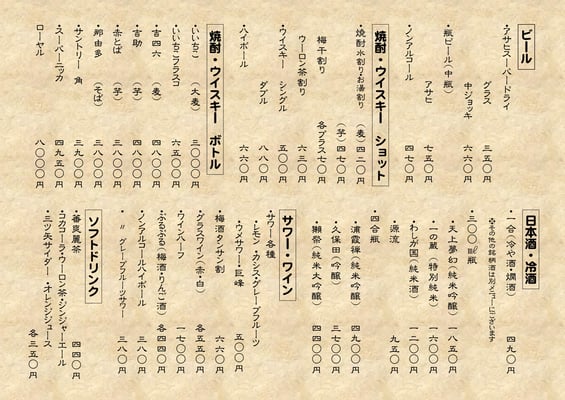 ビール
・アサヒスーパードライ
グラス　三五〇円
中ジョッキ　六六〇円
・瓶ビール（中瓶）
アサヒ　七五〇円
・ノンアルコール　四七〇円
焼酎・ウイスキー　ショット
・焼酎水割り・お湯割り　（麦）四二〇円
（芋）四七〇円
梅干割り　各プラス七〇円
・ウーロン茶割り　六三〇円
・ウイスキー　シングル　五〇〇円
ダブル　八八〇円
・ハイボール　六六〇円
焼酎・ウイスキー　ボトル
・いいちこ　（大麦）　三〇〇〇円
・いいちこフラスコ　六五〇〇円
・吉四六　（麦）　四八〇〇円
・吉助　（芋）　四八〇〇円
・赤とば　（芋）　三八〇〇円
・那由多　（そば）　三八〇〇円
・サントリー　角　三九〇〇円
・スーパーニッカ　四九五〇円
・ローヤル　八〇〇〇円
日本酒・冷酒
・一合（冷や酒・燗酒）　四九〇円
※その他の銘柄酒は別メニューにございます
・三〇〇㎖瓶
・天上夢幻（純米吟醸）　一八五〇円
・一の蔵（特別純米）　一六〇〇円
・わしが国（純米酒）　一二〇〇円
・源流　九五〇円
・四合瓶
・浦霞禅（純米吟醸）　四九〇〇円
・久保田（吟醸）　三七〇〇円
・獺祭（純米大吟醸）　四四〇〇円
サワー・ワイン
・サワー各種
・レモン・カシス・グレープフルーツ
・ウメサワー・巨峰　五〇〇円
・梅酒タンサン割　六六〇円
・グラスワイン（赤・白）　各五五〇円
・ワインハーフ　一七〇〇円
・ぷるぷる（梅酒・りんご酒）　各四四〇円
・ノンアルコールハイボール　三八〇円
・〃　グレープフルーツサワー　三八〇円
ソフトドリンク
・養良麗茶　四四〇円
・コカコーラ・ウーロン茶・ジンジャーエール
・三ツ矢サイダー・オレンジジュース　各三五〇円